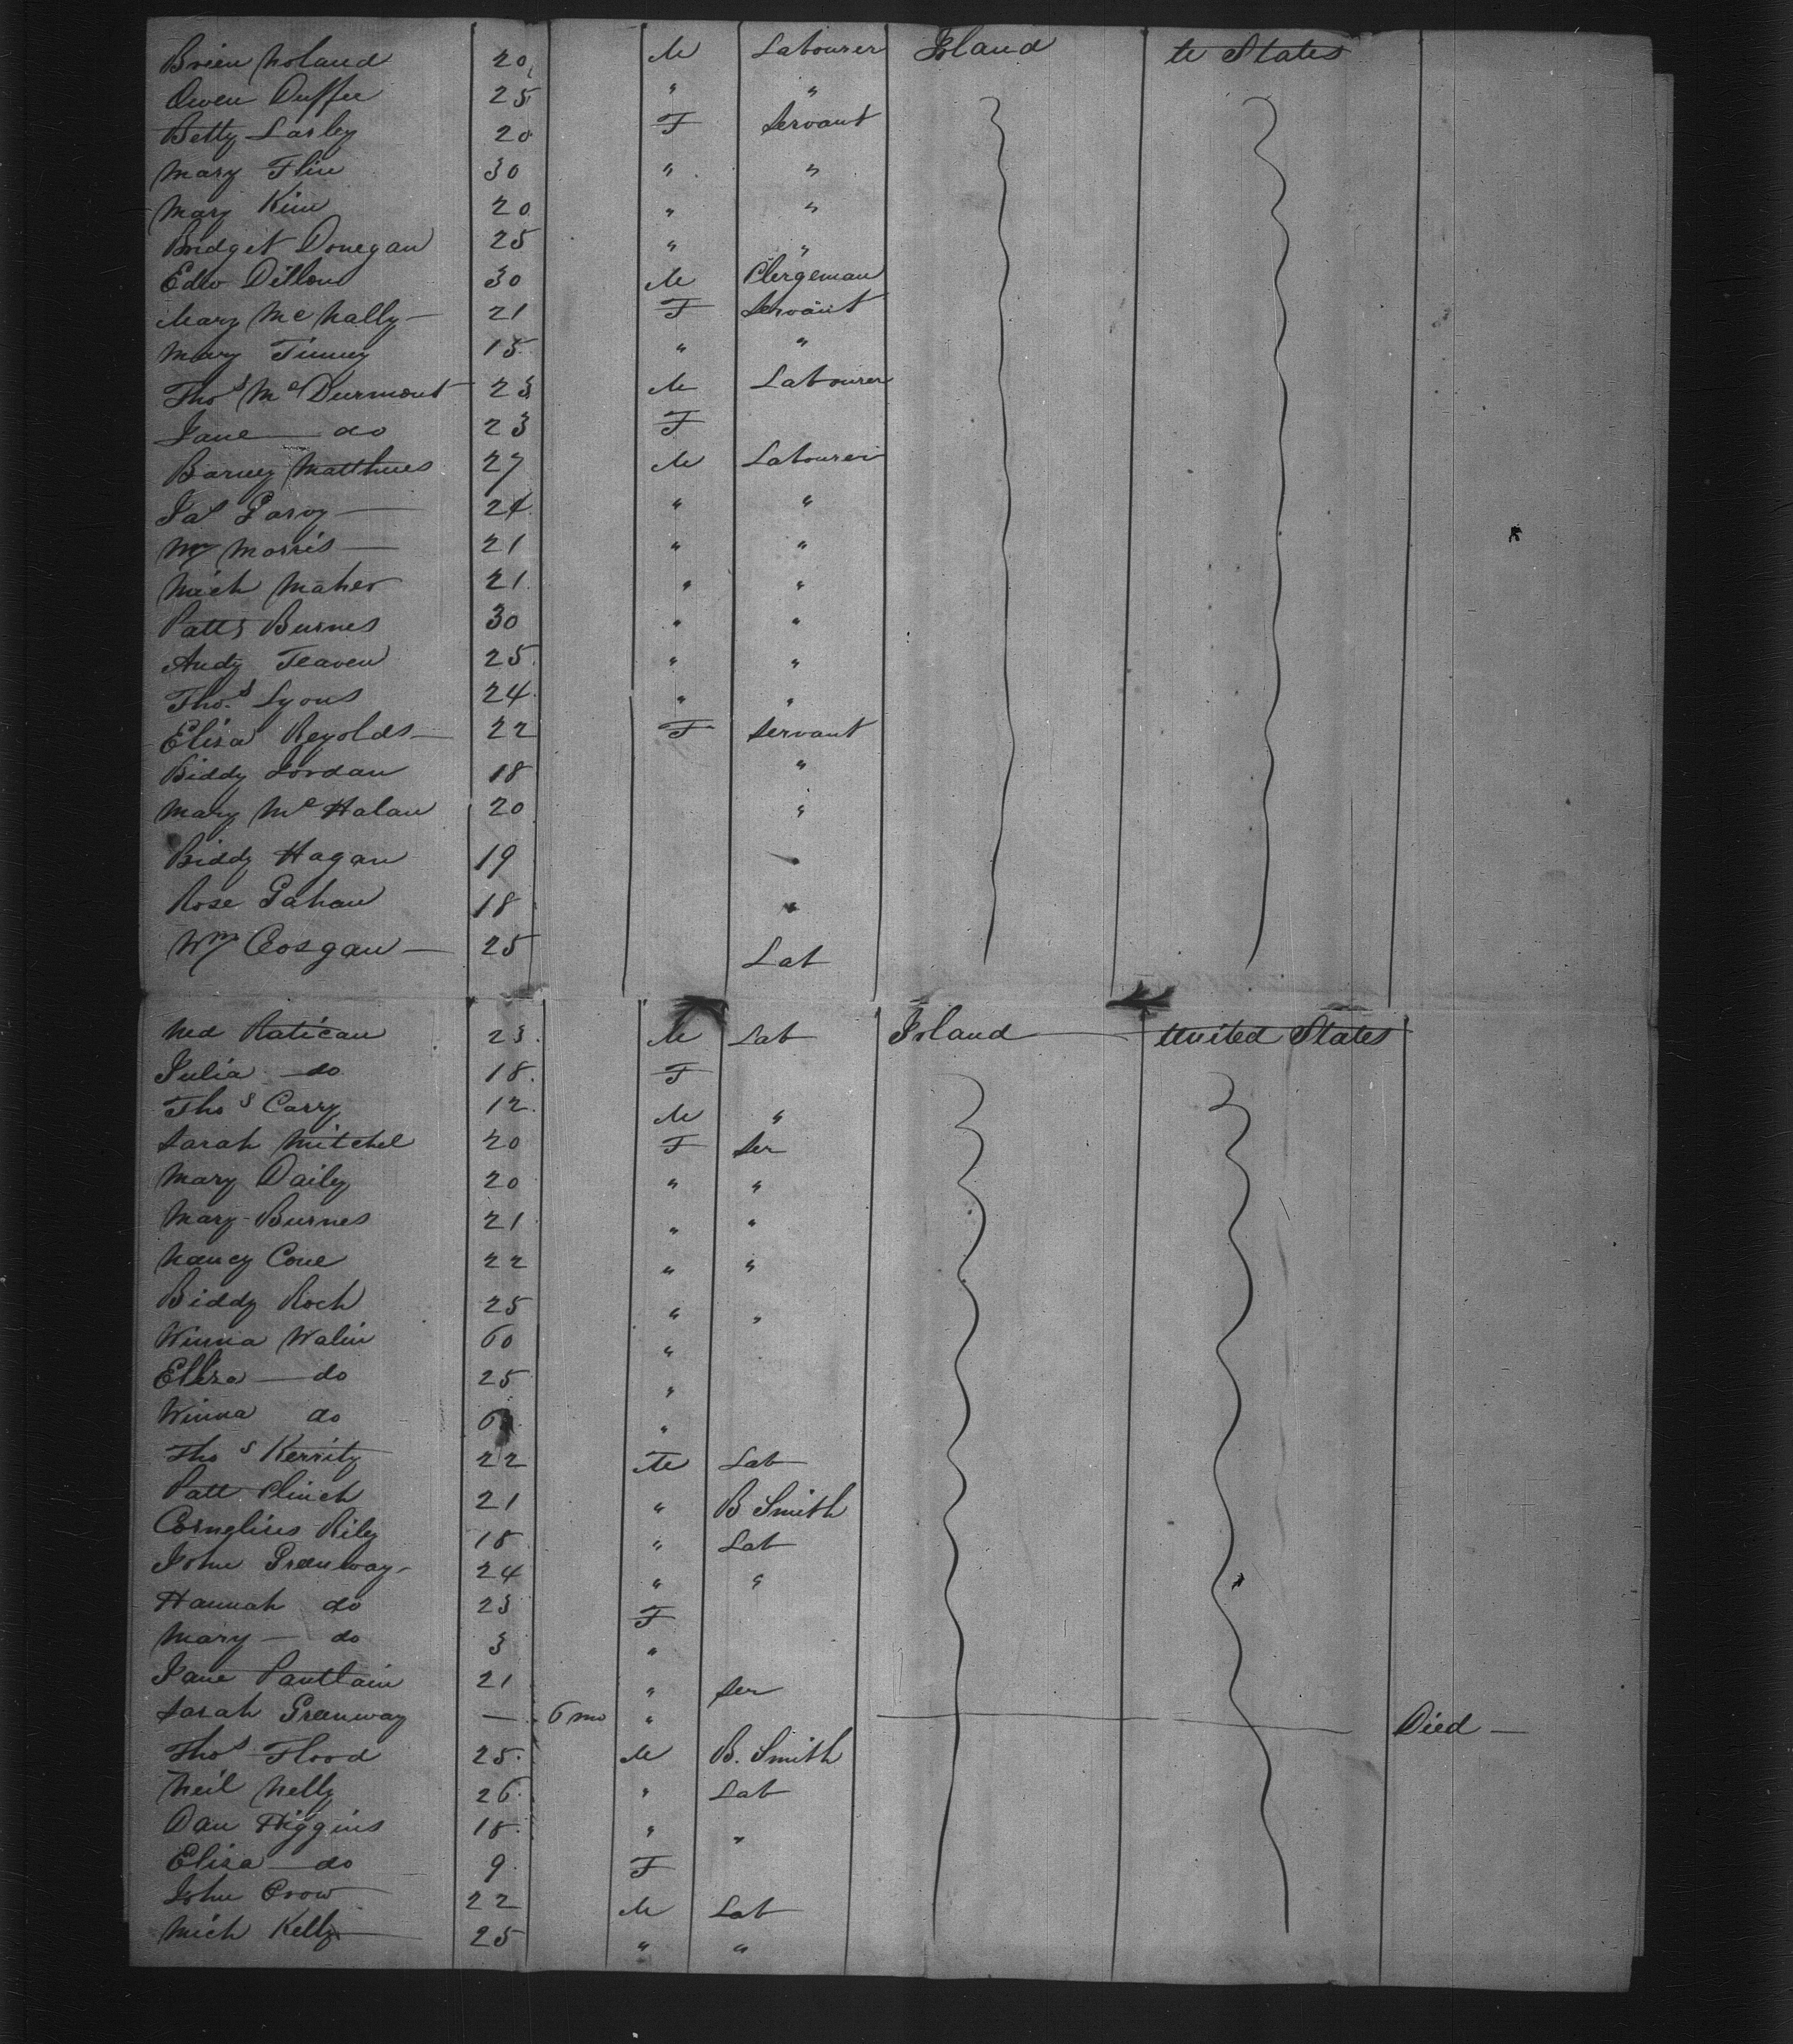 Brien Noland 20 M Labourer Irland te States
Owen Duffee 25 " "
Betty Larley 20 F Servant
Mary Flin 30 " "
Mary Kim 20 " "
Bridget Donegan 25 " "
Edw Dillon 30 M Clergeman
Mary Mc Nally 21 F Servant
Mary Tinney 15 " "
Thos Mc Durmont 23 M Labourer
Jane do 23 F
Barney Matthues 27 M Labourer
Jas Garvy 24 " "
Wm Morris 21 " "
Mich Maher 21 " "
Patt Burnes 30 " "
Andy Teaven 25 " "
Thos Lyons 24 " "
Elisa Reyolds 22 F Servant
Biddy Jordan 18 "
Mary Mc Halan 20 "
Biddy Hagan 19 "
Rose Gahan 18 "
Wm Cosgan 25 Lab
Ned Ratican 23 M Lab Irland United States
Julia do 18 F
Thos Carry 12 M "
Sarah Mitchel 20 F Ser
Mary Daily 20 " "
Mary Burnes 21 " "
Nancy Cone 22 " "
Biddy Roch 25 " "
Winna Walin 60 "
Eliza do 25 "
Winna do 6 "
Thos Kerrity 22 M Lab
Patt Clinch 21 " B Smith
Cornelius Rily 18 " Lab
John Greenway 24 " "
Hannah do 23 F
Mary do 3 "
Jane Pantlain 21 " Ser
Sarah Greenway — 6 mo " Died —
Thos Flood 25 M B. Smith
Neil Nelly 26 " Lab
Dan Higgins 18 " "
Elisa do 9 F
John Crow 22 M Lab
Mich Kelly 25 " "